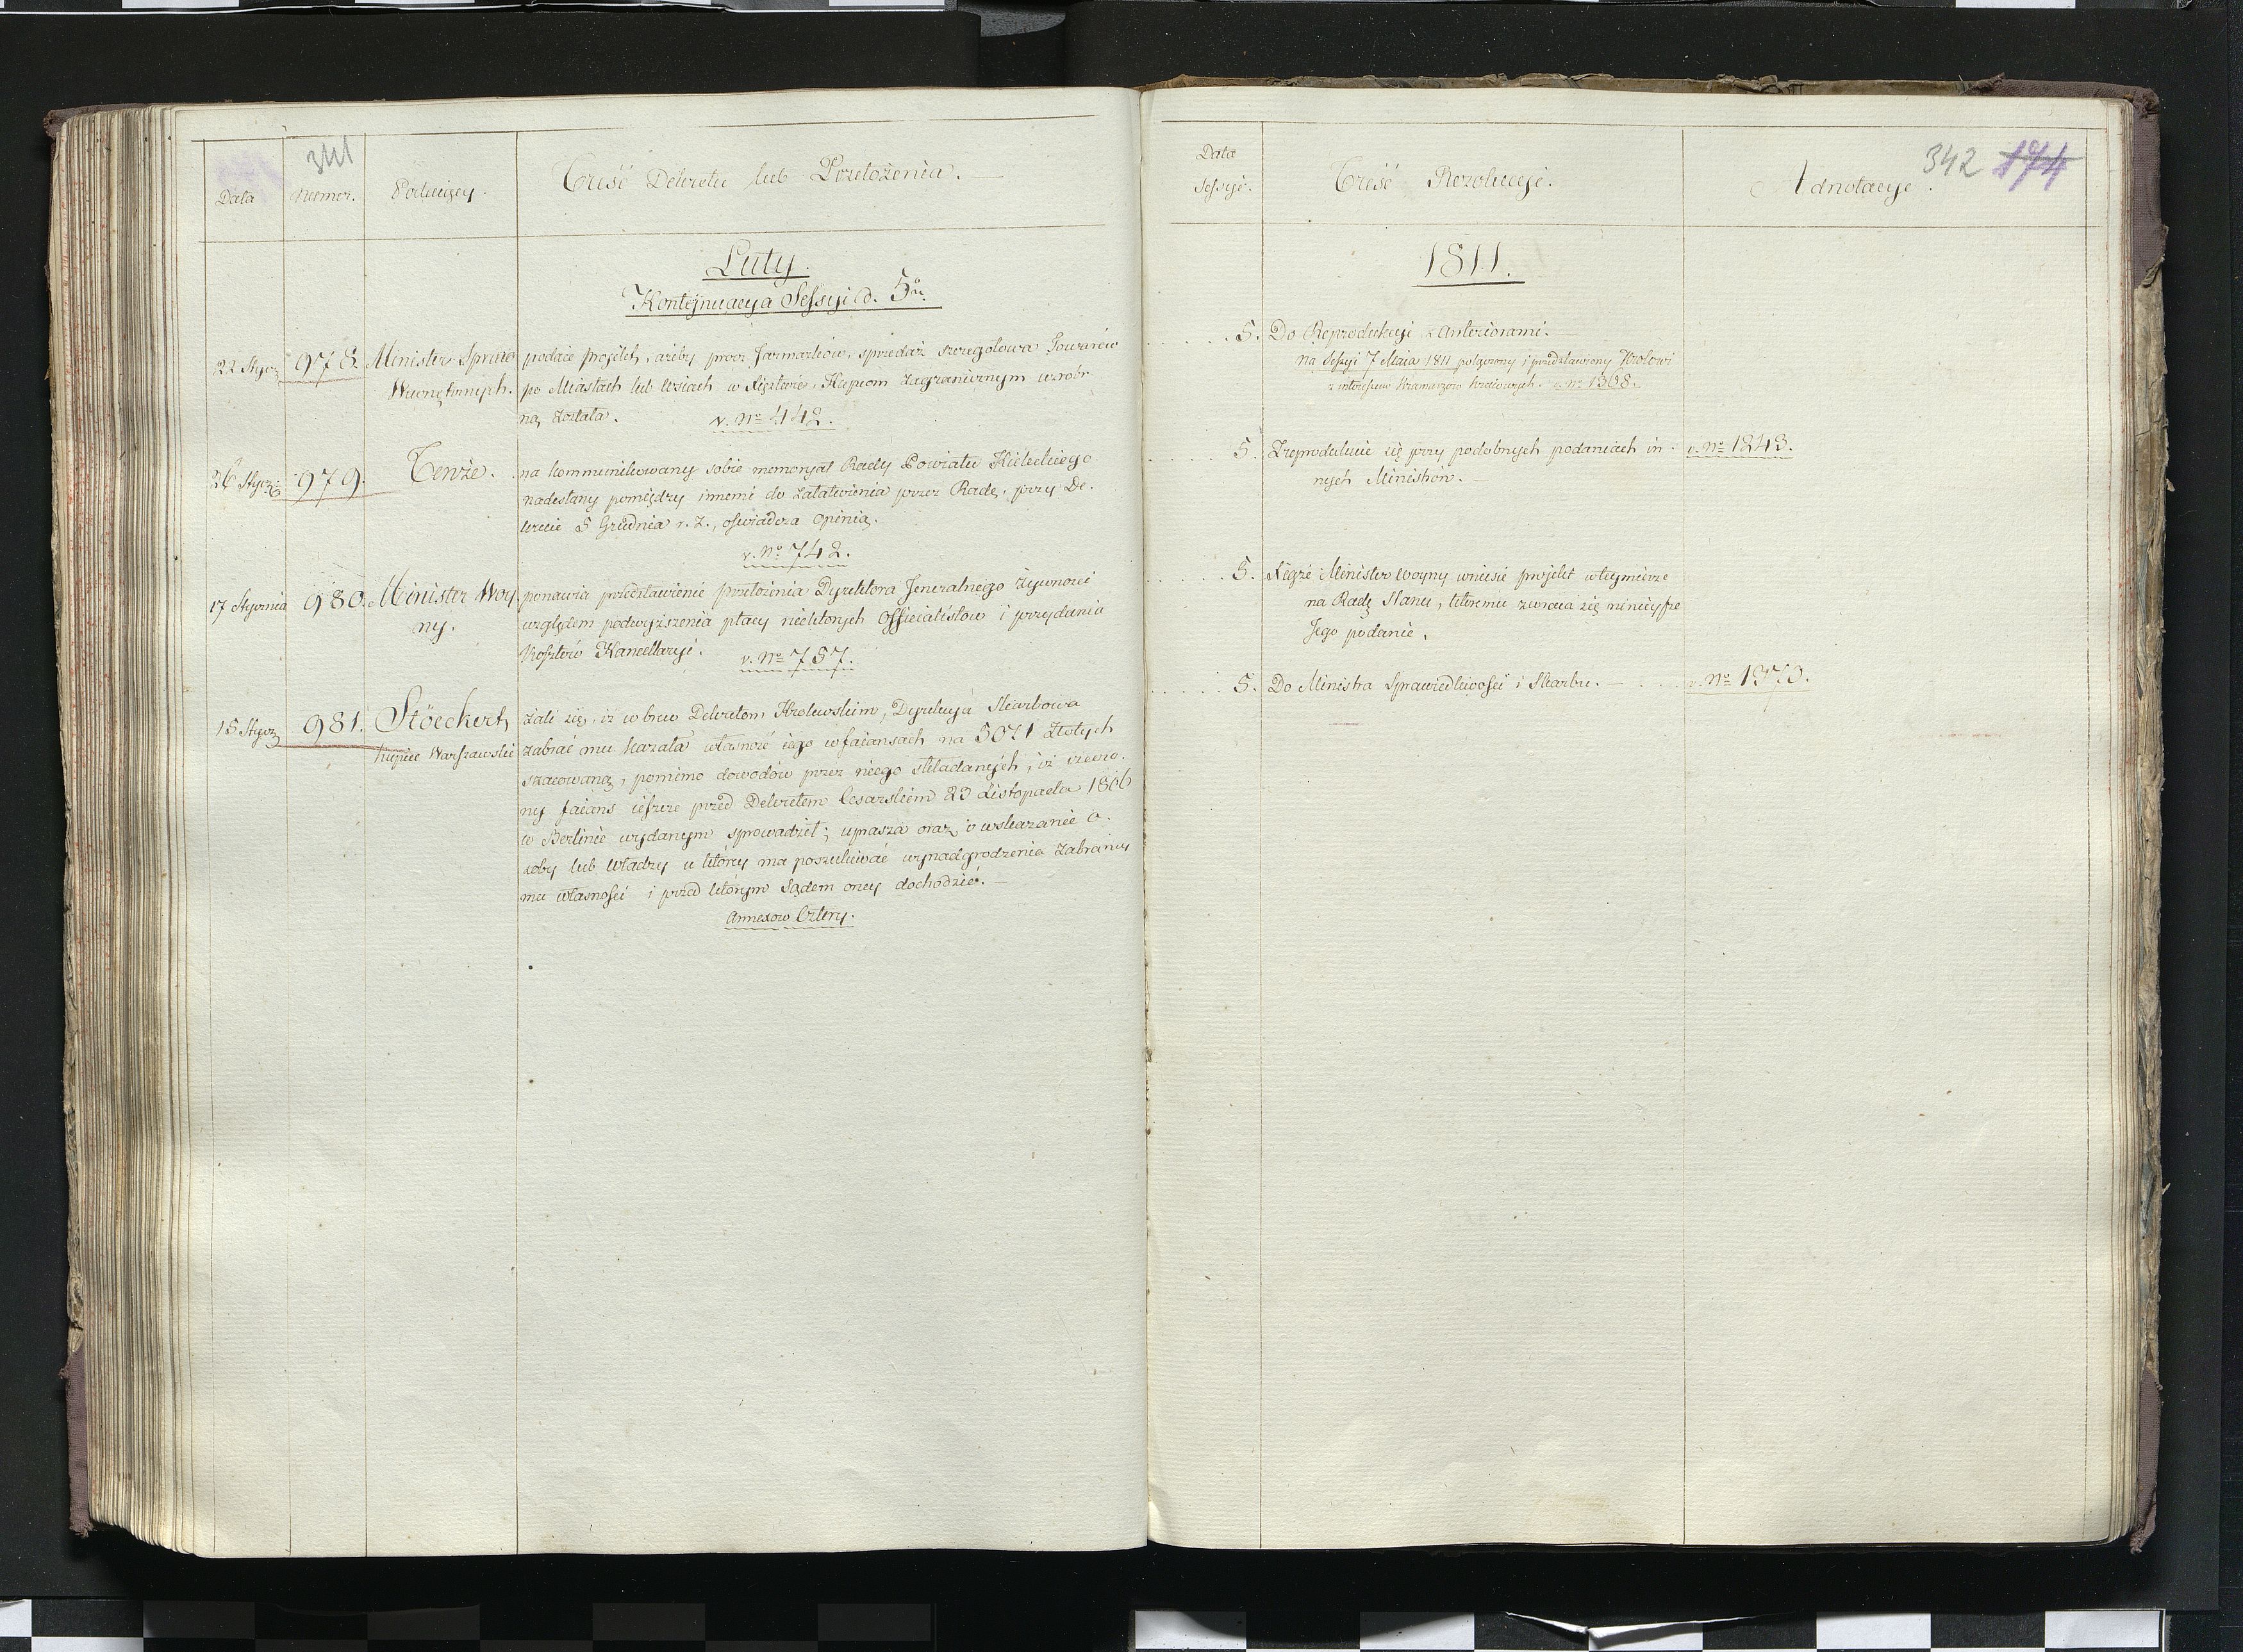 341
Data
Numer.
Podaiący.
Treść Dekretu lub Przełożenia.
Luty.
Kontynuacya Sessyi d. 5º
22 Stycz
978.
Minister Spraw
Wewnętrznych.
podaie projekt, ażeby prócz Jarmarków, sprzedaż szczegółowa Towarów
po Miastach lub Wsiach w Xięstwie, Kupcom zagranicznym wzbro-
ną została.
v. Nº 442.
26 Stycz:
979.
Tenże.
na kommunikowany sobie memoryał Rady Powiatu Kieleckiego
nadesłany pomiędzy innemi do załatwienia przez Radę, przy De-
krecie 5 Grudnia r. z., oświadcza opinią.
v. Nº 742.
17 Stycznia
980.
Minister Woy
ny.
ponawia przedstawienie przełożenia Dyrektora Jeneralnego Żywności
względem podwyższenia płacy niektórych Officialistów i przydania
Kosztów Kancellaryi.
v. Nº 757.
15 Stycz
981.
Stöeckert
Kupiec Warszawski
żali się, iż wbrew Dekretom Królewskim, Dyrekcya Skarbowa
zabrać mu kazała własność iego w faiansach na 5071 Złotych
szacowaną, pomimo dowodów przez niego składanych, iż rzeczo-
ny faians ieszcze przed Dekretem Cesarskim 23 Listopada 1806
w Berlinie wydanym sprowadził; uprasza oraz o wskazanie o-
soby lub Władzy u którey ma poszukiwać wynadgrodzenia zabraney
mu własności i przed którym Sądem oney dochodzić.
Annexow Cztery.
342 174
Data
Sessyi.
Treść Rezolucyi.
Adnotacye.
1811.
5. Do Reprodukcyi z Anteriorami.
Na Sessyi 7 Maia 1811 połączony i przedstawiony Królowi
z interessem Kramarzów Kraiowych. v. Nº 1368.
5. Zreprodukuie się przy podobnych podaniach in-
nych Ministrów.
v. Nº 1243.
5. Niech Minister Woyny wniesie projekt w tey mierze
na Radę Stanu, któremu zwraca się ninieysze
Jego podanie.
5. Do Ministra Sprawiedliwości i Skarbu.
v. Nº 1970.